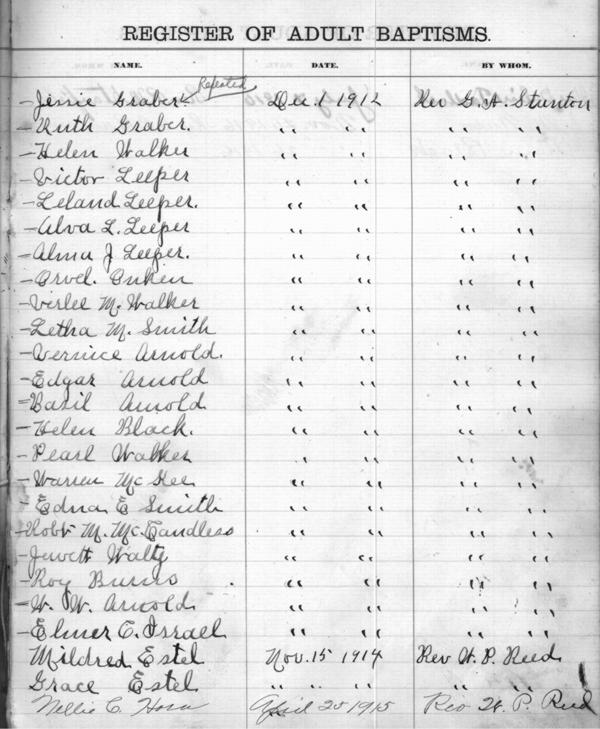 REGISTER OF ADULT BAPTISMS.
NAME. DATE. BY WHOM.
Repeated
- Jessie Graber Dec. 1 1912 Rev G. A. Stunton
- Ruth Graber. " " " "
- Helen Walker " " " "
- Victor Leeper " " " "
- Leland Leeper. " " " "
- Alva L. Leeper " " " "
- Alma J Leeper. " " " "
- Orvel " " " "
- Verlee M. Walker " " " "
- Letha M. Smith " " " "
- Vernice Arnold. " " " "
- Edgar Arnold " " " "
= Basil Arnold " " " "
- Helen Black. " " " "
- Pearl Walker " " " "
- Warren McGee " " " "
- Edna E Smith " " " "
- Robt M. McCandless " " " "
- Jewett Waltz " " " "
- Roy Burns " " " "
= W. W. Arnold " " " "
- Elmer C. Israel " " " "
Mildred Estel Nov. 15 1914 Rev W. P. Reed
Grace Estel " " " " "
Nellie C. Horn April 25 1915 Rev W. P. Reed